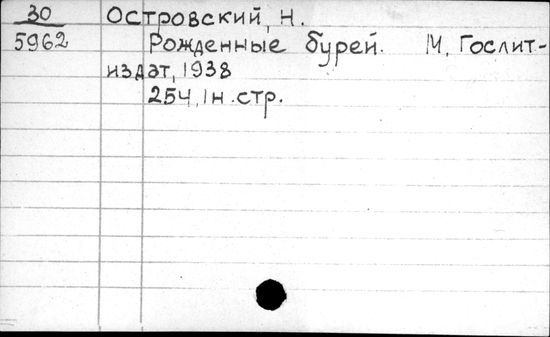 30
5962
Островский, Н.
Рожденные бурей. М, Гослит-
издат, 1938
254, 1н. стр.